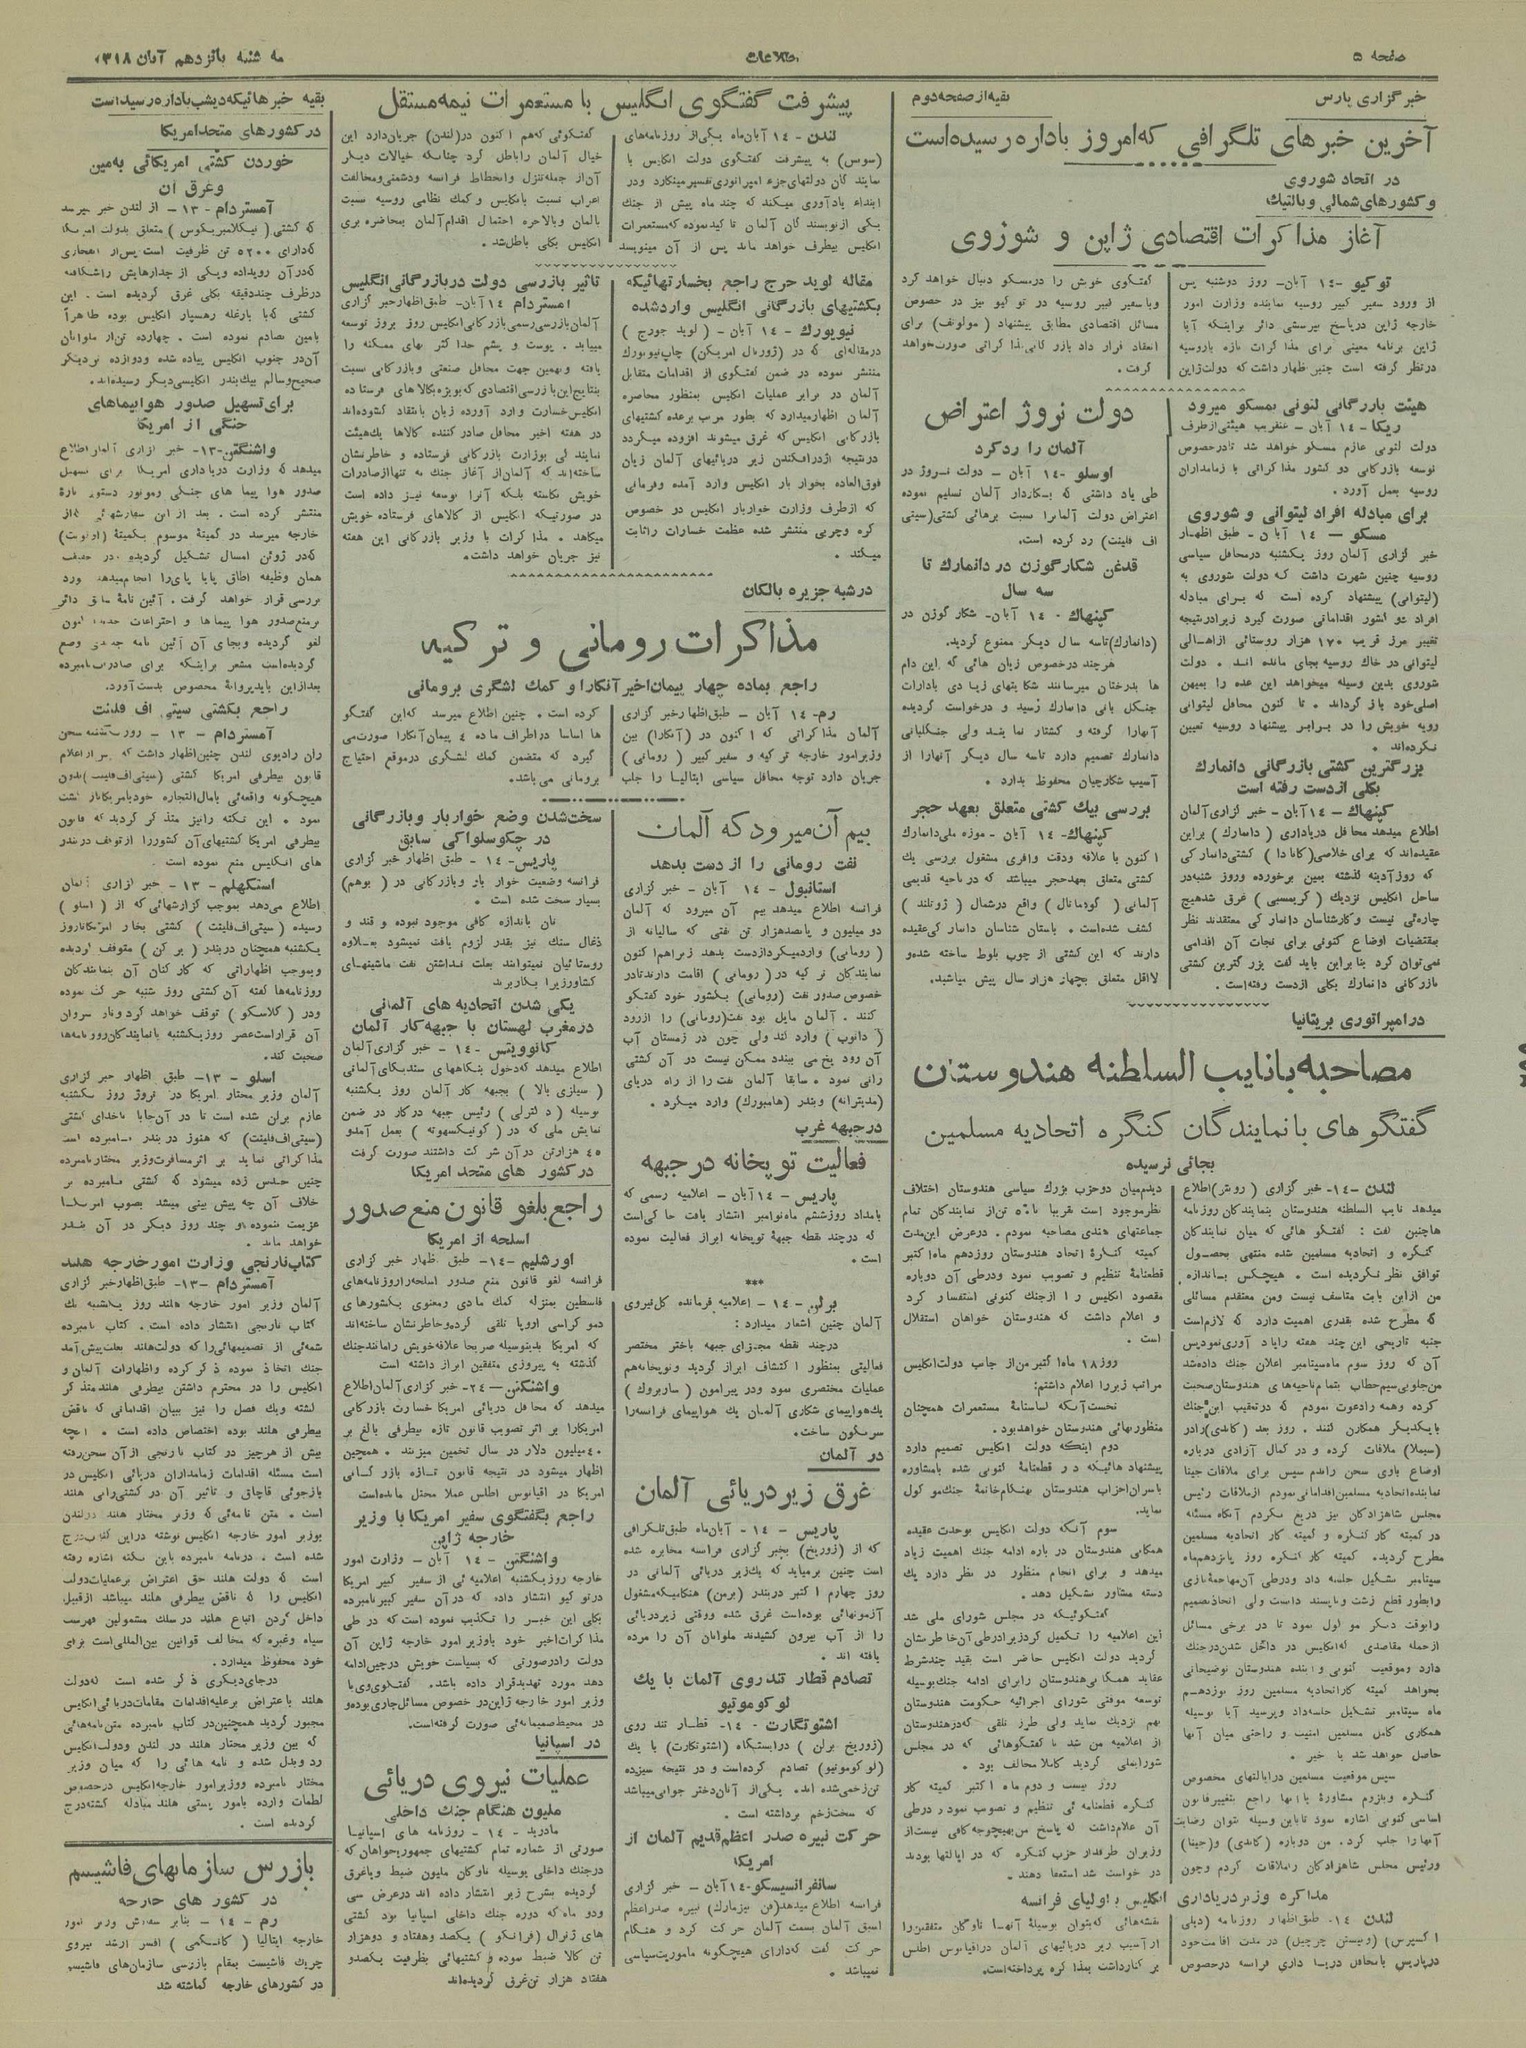 صفحه ۵
اطلاعات
سه شنبه پانزدهم آبان ۱۳۱۸
خبرگزاری پارس
بقیه از صفحه دوم
آخرین خبرهای تلگرافی که امروز باداره رسیده است
در اتحاد شوروی
و کشورهای شمالی و بالتیك
آغاز مذاکرات اقتصادی ژاپن و شوروی
توکیو -۱٤ آبان- روز دوشنبه پس
از ورود سفیر کبیر روسیه نماینده وزارت امور
خارجه ژاپن درپاسخ پرسشی دائر براینکه آیا
ژاپن برنامه معینی برای مذاکرات تازه باروسیه
درنظر گرفته است چنین اظهار داشت که دولت ژاپن
گفتگوی خویش را درمسکو دنبال خواهد کرد
وباسفیر کبیر روسیه در توکیو نیز در خصوص
مسائل اقتصادی مطابق پیشنهاد ( مولوتف) برای
انعقاد قرار داد بازرگانی مذاکراتی صورت خواهد
گرفت .
هیئت بازرگانی لتونی بمسکو میرود
ریگا - ۱٤ آبان - عنقریب هیئتی ازطرف
دولت لتونی عازم مسکو خواهد شد تادرخصوص
توسعه بازرگانی دو کشور مذاکراتی با زمامداران
روسیه بعمل آورد .
برای مبادله افراد لیتوانی و شوروی
مسکو - ۱٤ آبان - طبق اظهار
خبر گزاری آلمان روز یکشنبه درمحافل سیاسی
روسیه چنین شهرت داشت که دولت شوروی به
(لیتوانی) پیشنهاد کرده است که برای مبادله
افراد دو کشور اقداماتی صورت گیرد زیرادرنتیجه
تغییر مرز قریب ۱۷۰ هزار روستائی ازاهالی
لیتوانی در خاك روسیه بجای مانده اند . دولت
شوروی بدین وسیله میخواهد این عده را بمیهن
اصلی خود باز گرداند . تا کنون محافل لیتوانی
رویه خویش را در برابر پیشنهاد روسیه تعیین
نکرده‌اند .
بزرگترین کشتی بازرگانی دانمارك
بکلی ازدست رفته است
کپنهاك - ۱٤ آبان - خبر گزاری آلمان
اطلاع میدهد محافل دریاداری ( دانمارك ) براین
عقیده‌اند که برای خلاصی (کانادا ) کشتی دانمارکی
که روز آدینه گذشته بمین برخورده وروز شنبه در
ساحل انگلیس نزدیك ( گریمسبی ) غرق شد هیچ
چاره‌ئی نیست و کارشناسان دانمارکی معتقدند نظر
بمقتضیات اوضاع کنونی برای نجات آن اقدامی
نمی‌توان کرد بنابراین باید گفت بزرگترین کشتی
بازرگانی دانمارك بکلی ازدست رفته‌است .
دولت نروژ اعتراض
آلمان را رد کرد
اوسلو -۱٤ آبان - دولت نروژ در
طی یاد داشتی که بکاردار آلمان تسلیم نموده
اعتراض دولت آلمانرا نسبت برهائی کشتی (سیتی
اف فلینت) رد کرده است.
قدغن شکار گوزن در دانمارك تا
سه سال
کپنهاك - ۱٤ آبان- شکار گوزن در
(دانمارك) تاسه سال دیگر ممنوع گردید.
هرچند درخصوص زیان هائی که این دام
ها بدرختان میرسانند شکایتهای زیادی بادارات
جنگل بانی دانمارك رسید و درخواست گردیده
آنهارا گرفته و کشتار نمایند ولی جنگلبانی
دانمارك تصمیم دارد تاسه سال دیگر آنهارا از
آسیب شکارچیان محفوظ بدارد .
بررسی بیك کشتی متعلق بعهد حجر
کپنهاك- ۱٤ آبان - موزه ملی دانمارك
اکنون با علاقه ودقت وافری مشغول بررسی یك
کشتی متعلق بعهد حجر میباشد که در ناحیه قدیمی
آلمانی ( گودمانال ) واقع درشمال ( ژوتلند )
کشف شده‌است . باستان شناسان دانمارکی عقیده
دارند که این کشتی از چوب بلوط ساخته شده و
لااقل متعلق بچهار هزار سال پیش میباشد .
درامپراتوری بریتانیا
مصاحبه بانایب السلطنه هندوستان
گفتگوهای بانمایندگان کنگره اتحادیه مسلمین
بجائی نرسیده
لندن -۱٤- خبر گزاری (رویتر) اطلاع
میدهد نایب السلطنه هندوستان بنمایندگان روزنامه
هاچنین گفت : گفتگو هائی که میان نمایندگان
کنگره و اتحادیه مسلمین شده منتهی بحصول
توافق نظر نگردیده است . هیچکس باندازه
من ازاین بابت متاسف نیست ومن معتقدم مسائلی
که مطرح شده بقدری اهمیت دارد که لازم‌است
جنبه تاریخی این چند هفته رایاد آوری نمودیس
آن که روز سوم ماه سپتامبر اعلان جنك داده شد
من‌جلوبی سیم خطاب بتمام ناحیه‌های هندوستان صحبت
کرده وهمه رادعوت نمودم که درتعقیب این جنك
بایکدیگر همکاری کنند . روز بعد (گاندی) رادر
(سیملا) ملاقات کرده و در کمال آزادی درباره
اوضاع باوی سخن راندم سپس برای ملاقات جینا
نماینده اتحادیه مسلمین اقداماتی نمودم ازملاقات رئیس
مجلس شاهزادگان نیز دریغ نکردم آنگاه مسئله
در کمیته کار کنگره و کمیته کار اتحادیه مسلمین
مطرح گردید. کمیته کار کنگره روز پانزدهم ماه
سپتامبر تشکیل جلسه داد ودرطی آن مهاجمه نازی
رابطور قطع زشت و ناپسند دانست ولی اتخاذ تصمیم
رابوقت دیگر موکول نمود تا در برخی مسائل
ازجمله مقاصدی که انگلیس در داخل شدن درجنك
دارد وموقعیت کنونی و آینده هندوستان توضیحاتی
بخواهد کمیته کاراتحادیه مسلمین روز نوزدهم
ماه سپتامبر تشکیل جلسه داد وپرسید آیا بوسیله
همکاری کامل مسلمین امنیت و راحتی میان آنها
حاصل خواهد شد یا خیر .
سپس موقعیت مسلمین درایالتهای مخصوص
کنگره وبلزوم مشاورهٔ با آنها راجع بتغییر قانون
اساسی کنونی اشاره نمود تاباین وسیله بتوان رضایت
آنها را جلب کرد. من دوباره (گاندی) و (جینا)
ورئیس مجلس شاهزادگان راملاقات کردم وچون
دیدم میان دوحزب بزرك سیاسی هندوستان اختلاف
نظر موجود است تقریبا با ۵۰ تن از نمایندگان تمام
جماعتهای هندی مصاحبه نمودم . درعرض این مدت
کمیته کنگره اتحاد هندوستان روزدهم ماه اکتبر
قطعنامهٔ تنظیم و تصویب نمود ودرطی آن دوباره
مقصود انگلیس را ازجنك کنونی استفسار کرد
و اعلام داشت که هندوستان خواهان استقلال
است .
روز ۱۸ ماه اکتبر من از جانب دولت انگلیس
مراتب زیررا اعلام داشتم:
نخست آنکه اساسنامهٔ مستعمرات همچنان
منظور نهائی هندوستان خواهدبود .
دوم اینکه دولت انگلیس تصمیم دارد
پیشنهاد هائیکه در قطعنامهٔ کنونی شده بامشاوره
باسران احزاب هندوستان بهنگام خاتمهٔ جنك موکول
نماید.
سوم آنکه دولت انگلیس بوحدت عقیده
همگانی هندوستان در باره ادامه جنك اهمیت زیاد
میدهد و برای انجام منظور در نظر دارد یك
دسته مشاور تشکیل دهد .
گفتگوئیکه در مجلس شورای ملی شد
این اعلامیه را تکمیل کردزیرادرطی آن خاطرنشان
گردید دولت انگلیس حاضر است بقید چند شرط
عقاید همگانی هندوستان رابرای ادامه جنك بوسیله
توسعه موقتی شورای اجرائیه حکومت هندوستان
بهم نزدیك نماید ولی طرز تلقی که در هندوستان
از اعلامیه من شد با گفتگوهائی که در مجلس
شورایملی گردید کاملا مخالف بود .
روز بیست و دوم ماه اکتبر کمیته کار
کنگره قطعنامه ئی تنظیم و تصویب نمود ودرطی
آن اعلام داشت که پاسخ من بهیچوجه کافی نیست از
وزیران طرفدار حزب کنگره که در ایالتها بودند
در خواست شد استعفا دهند .
مذاکره وزیردریاداری انگلیس با اولیای فرانسه
لندن ۱٤- طبق اظهار روزنامه (دیلی
اکسپرس) (وینستن چرچیل) در مدت اقامت خود
درپاریس بامحافل دریاداری فرانسه درخصوص
نقشه‌هائی که بتوان بوسیلهٔ آنها ناوگان متفقین را
ازآسیب زیر دریائیهای آلمان دراقیانوس اطلس
برکنارداشت بمذاکره پرداخته‌است.
پیشرفت گفتگوی انگلیس با مستعمرات نیمه مستقل
لندن - ۱٤ آبان‌ماه یکی از روزنامه‌های
(سوئیس) به پیشرفت گفتگوی دولت انگلیس با
نمایندگان دولتهای جزء امپراتوری تفسیر مینگارد ودر
ابتداء یادآوری میکند که چند ماه پیش از جنك
یکی ازنویسندگان آلمان تاکید نموده که مستعمرات
انگلیس بیطرف خواهد ماند پس از آن مینویسد
گفتگوئی که هم اکنون در (لندن) جریان دارد این
خیال آلمان راباطل کرد چنانکه خیالات دیگر
آن از جمله تنزل وانحطاط فرانسه ودشمنی ومخالفت
اعراب نسبت بانگلیس و کمك نظامی روسیه نسبت
بآلمان وبالاخره احتمال اقدام آلمان بمحاصره بری
انگلیس بکلی باطل شد .
مقاله لوید جرج راجع بخسارتهائیکه
بکشتیهای بازرگانی انگلیس وارد شده
نیویورك - ۱٤ آبان - ( لوید جورج )
درمقاله‌ای که در (ژورنال امریکن) چاپ نیویورك
منتشر نموده در ضمن گفتگوی از اقدامات متقابل
آلمان در برابر عملیات انگلیس بمنظور محاصره
آلمان اظهارمیدارد که بطور مرتب برعده کشتیهای
بازرگانی انگلیس که غرق میشوند افزوده میگردد
درنتیجه اژدرافکندن زیر دریائیهای آلمان زیان
فوق‌العاده بخوار بار انگلیس وارد آمده وفرمانی
که ازطرف وزارت خواربار انگلیس در خصوص
کره وچربی منتشر شده عظمت خسارات راثابت
میکند .
تاثیر بازرسی دولت دربازرگانی انگلیس
امستردام ۱٤ آبان- طبق اظهارخبر گزاری
آلمان بازرسی رسمی بازرگانی انگلیس روز بروز توسعه
مییابد . پوست و پشم حدا کثر بهای ممکنه را
یافته وبهمین جهت محافل صنعتی وبازرگانی نسبت
بنتایج این بازرسی اقتصادی که بویژه بکالاهای فرستاده
انگلیس خسارت وارد آورده زبان بانتقاد گشوده‌اند
در هفته اخیر محافل صادر کننده کالاها یك هیئت
نمایندگی بوزارت بازرگانی فرستاده و خاطرنشان
ساخته‌اند که آلمان از آغاز جنك نه تنها از صادرات
خویش نکاسته بلکه آنرا توسعه نیز داده است
در صورتیکه انگلیس از کالاهای فرستاده خویش
میکاهد . مذاکرات با وزیر بازرگانی این هفته
نیز جریان خواهد داشت.
درشبه جزیره بالکان
مذاکرات رومانی و ترکیه
راجع بماده چهار پیمان اخیر آنکارا و کمك لشگری برومانی
رم-۱٤ آبان - طبق اظهار خبر گزاری
آلمان مذاکراتی که اکنون در (آنکارا) بین
وزیر امور خارجه ترکیه و سفیر کبیر ( رومانی )
جریان دارد توجه محافل سیاسی ایتالیا را جلب
کرده است . چنین اطلاع میرسد که این گفتگو
ها اساسا دراطراف ماده ٤ پیمان آنکارا صورت می
گیرد که متضمن کمك لشگری درموقع احتیاج
برومانی می‌باشد.
بیم آن میرود که آلمان
نفت رومانی را از دست بدهد
استانبول - ۱٤ آبان - خبر گزاری
فرانسه اطلاع میدهد بیم آن میرود که آلمان
دو میلیون و پانصد هزار تن نفتی که سالیانه از
(رومانی) واردمیکرد ازدست بدهد زیراهم اکنون
نمایندگان ترکیه در ( رومانی ) اقامت دارند تادر
خصوص صدور نفت (رومانی) بکشور خود گفتگو
کنند . آلمان مایل بود نفت (رومانی) را ازرود
( دانوب ) وارد کند ولی چون در زمستان آب
آن رود یخ می بندد ممکن نیست در آن کشتی
رانی نمود . سابقا آلمان نفت را از راه دریای
(مدیترانه) وبندر (هامبورك) وارد میکرد .
درجبهه غرب
فعالیت توپخانه درجبهه
پاریس - ۱٤ آبان - اعلامیه رسمی که
بامداد روزششم ماه نوامبر انتشار یافت حاکی است
که درچند نقطه جبههٔ توپخانه ابراز فعالیت نموده
است .
***
برلن - ۱٤ - اعلامیه فرمانده کل نیروی
آلمان چنین اشعار میدارد :
درچند نقطه مجزای جبهه باختر مختصر
فعالیتی بمنظور اکتشاف ابراز گردید وتوپخانه‌هم
عملیات مختصری نمود ودر پیرامون ( ساربروك )
یك‌هواپیمای شکاری آلمان یك هواپیمای فرانسه‌را
سرنگون ساخت.
در آلمان
غرق زیردریائی آلمان
پاریس - ۱٤ - آبان‌ماه طبق تلگرافی
که از (زوریخ) بخبر گزاری فرانسه مخابره شده
است چنین برمیاید که یك‌زیر دریائی آلمانی در
روز چهارم اکتبر دربندر (برمن) هنگامیکه مشغول
آزمونهائی بوده‌است غرق شده ووقتی زیردریائی
را از آب بیرون کشیدند ملوانان آن را مرده
یافته اند .
تصادم قطار تندروی آلمان با یك
لوکوموتیو
اشتوتگارت - ۱٤- قطار تند روی
(زوریخ برلن ) درایستگاه (اشتوتگارت) با یك
(لوکوموتیو) تصادم کرده‌است و در نتیجه سیزده
تن‌زخمی‌شده‌اند. یکی از آنان دختر جوانی میباشد
که سخت زخم برداشته است .
حرکت نبیره صدر اعظم قدیم آلمان از
امریکا
سانفرانسیسکو-۱٤ آبان - خبر گزاری
فرانسه اطلاع میدهد (فن بیزمارك) نبیره صدراعظم
اسبق آلمان بسمت آلمان حرکت کرد و هنگام
حرکت گفت که‌دارای هیچگونه ماموریت سیاسی
نمیباشد .
سخت شدن وضع خواربار وبازرگانی
در چکوسلواکی سابق
پاریس- ۱٤ - طبق اظهار خبر گزاری
فرانسه وضعیت خوار بار وبازرگانی در ( بوهم)
بسیار سخت شده است .
نان باندازه کافی موجود نبوده و قند و
ذغال سنك نیز بقدر لزوم یافت نمیشود بعلاوه
روستائیان نمیتوانند بعلت نداشتن نفت ماشینهای
کشاورزیرا بکاربرند
یکی شدن اتحادیه های آلمانی
درمغرب لهستان با جبهه کار آلمان
کاتوویتس - ۱٤- خبر گزاری آلمان
اطلاع میدهد که دخول بنگاههای سندیکای آلمانی
( سیلزی بالا ) بجبهه کار آلمان روز یکشنبه
بوسیله ( دکترلی ) رئیس جبهه درکار در ضمن
نمایش ملی که در ( کونیکسهوته ) بعمل آمدو
٤۵ هزارتن درآن شرکت داشتند صورت گرفت
درکشور های متحد امریکا
راجع بلغو قانون منع صدور
اسلحه از امریکا
اورشلیم -۱٤- طبق اظهار خبر گزاری
فرانسه لغو قانون منع صدور اسلحه را روزنامه‌های
فلسطین بمنزله کمك مادی ومعنوی بکشورهای
دموکراسی اروپا تلقی کرده وخاطرنشان ساخته‌اند
که امریکا بدینوسیله صریحا علاقه خویش را مانند جنك
گذشته به پیروزی متفقین ابراز داشته است
واشنگتن - ۲٤- خبر گزاری آلمان اطلاع
میدهد که محافل دریائی امریکا خسارت بازرگانی
امریکارا بر اثر تصویب قانون تازه بیطرفی بالغ بر
٤۰ میلیون دلار در سال تخمین میزنند . همچنین
اظهار میشود در نتیجه قانون تازه بازرگانی
امریکا در اقیانوس اطلس عملا مختل مانده‌است
راجع بگفتگوی سفیر امریکا با وزیر
خارجه ژاپن
واشنگتن - ۱٤ آبان - وزارت امور
خارجه روز یکشنبه اعلامیه ئی از سفیر کبیر امریکا
درتوکیو انتشار داده که درآن سفیر کبیر نامبرده
بکلی این خبر را تکذیب نموده است که در طی
مذاکرات اخیر خود باوزیر امور خارجه ژاپن آن
دولت رادرصورتی که بسیاست خویش درچین ادامه
دهد مورد تهدید قرار داده باشد. گفتگوی وی با
وزیر امور خارجه ژاپن در خصوص مسائل جاری بوده‌و
در محیط صمیمانه‌ئی صورت گرفته‌است.
در اسپانیا
عملیات نیروی دریائی
ملیون هنگام جنك داخلی
مادرید - ۱٤ - روزنامه های اسپانیا
صورتی از شماره تمام کشتیهای جمهوریخواهان که
درجنك داخلی بوسیله ناوگان ملیون ضبط ویاغرق
گردیده بشرح زیر انتشار داده اند درعرض سی
ودو ماه که دوره جنك داخلی اسپانیا بود کشتی
های ژنرال (فرانکو ) یکصد وهفتاد و دوهزار
تن کالا ضبط نموده و کشتیهائی بظرفیت یکصدو
هفتاد هزار تن غرق گردیده‌اند
بقیه خبرهائیکه دیشب باداره رسیداست
درکشورهای متحد امریکا
خوردن کشتی امریکائی به مین
وغرق آن
آمستردام - ۱۳ - از لندن خبر میرسد
که کشتی ( نیکلامبریکوس ) متعلق بدولت امریکا
که‌دارای ۵۲۰۰ تن ظرفیت است پس از انفجاری
که‌درآن رویداده ویکی از جدارهایش راشکافته
درظرف چند دقیقه بکلی غرق گردیده است . این
کشتی که‌با بارغله رهسپار انگلیس بوده ظاهراً
بامین تصادم نموده است . چهارده تن از ملوانان
آن در جنوب انگلیس پیاده شده ودوازده نفر دیگر
صحیح وسالم بیك بندر انگلیسی دیگر رسیده‌اند.
برای تسهیل صدور هواپیماهای
جنگی از امریکا
واشنگتن-۱۳- خبر گزاری آلمان اطلاع
میدهد که وزارت دریاداری امریکا برای تسهیل
صدور هوا پیما های جنگی وموتور دستور تازهٔ
منتشر کرده است .
همان وظیفه اطاق پایا پای را انجام میدهد
بررسی قرار خواهد گرفت . آئین نامهٔ سابق دائر
برمنع صدور هوا پیماها و اختراعات جدید
لغو گردیده وبجای آن آئین نامه جدیدی وضع
گردیده‌است مشعر براینکه برای صادرات نامبرده
بعدازاین باید پروانهٔ مخصوص بدست آورد.
راجع بکشتی سیتی اف فلینت
آمستردام - ۱۳ - روز سه‌شنبه سخن
ران رادیوی لندن چنین اظهار داشت که پس از اعلام
قانون بیطرفی امریکا کشتی (سیتی اف فلینت) بدون
هیچگونه واقعه‌ئی بامال‌التجاره خود بامریکا باز گشت
نمود . این نکته رانیز متذکر گردید که قانون
بیطرفی امریکا کشتیهای آن کشوررا از توقف در بندر
های انگلیس منع نموده است .
استکهلم - ۱۳ - خبر گزاری آلمان
اطلاع می‌دهد بموجب گزارشهائی که از ( اسلو )
رسیده ( سیتی اف فلینت ) کشتی بخار امریکا تا روز
یکشنبه همچنان دربندر ( برگن ) متوقف گردیده
وبموجب اظهاراتی که کارکنان آن بنمایندگان
روزنامه‌ها گفته آن کشتی روز شنبه حرکت نموده
ودر ( گلاسکو ) توقف خواهد کرد وناو سروان
آن قراراست عصر روز یکشنبه بانمایندگان روزنامه‌ها
صحبت کند.
اسلو - ۱۳- طبق اظهار خبر گزاری
آلمان وزیر مختار امریکا در نروژ روز یکشنبه
عازم برگن شده است تا در آن‌جا با ناخدای کشتی
(سیتی‌اف‌فلینت) که هنوز در بندر نامبرده است
مذاکراتی نماید بر اثر مسافرت وزیر مختار نامبرده
چنین حدس زده میشود که کشتی نامبرده بر
خلاف آن چه پیش بینی میشد بصوب امریکا
عزیمت ننموده‌او چند روز دیگر در آن بندر
خواهد ماند .
کتاب نارنجی وزارت امورخارجه هلند
آمستردام -۱۳- طبق اظهار خبر گزاری
آلمان وزیر امور خارجه هلند روز یکشنبه یك
کتاب نارنجی انتشار داده است . کتاب نامبرده
شمه‌ئی از تصمیمهائی را که دولت‌هلند بعلت پیش آمد
جنك اتخاذ نموده ذکر کرده واظهارات آلمان و
انگلیس را در محترم داشتن بیطرفی هلند متذکر
گشته ویك فصل را نیز ببیان اقداماتی که ناقض
بیطرفی هلند بوده اختصاص داده است . آنچه
بیش از هرچیز در کتاب نارنجی ازآن سخن رفته
است مسئله اقدامات زمامداران دریائی انگلیس در
بازجوئی قاچاق و تاثیر آن در کشتی‌رانی هلند
است . متن نامه‌ئی که وزیر مختار هلند درلندن
بوزیر امور خارجه انگلیس نوشته دراین کتاب درج
شده است . درنامه نامبرده باین نکته اشاره رفته
است که دولت هلند حق اعتراض برعملیات دولت
انگلیس را که ناقض بیطرفی هلند میباشد ازقبیل
داخل کردن اتباع هلند در سلك مشمولین فهرست
سیاه وغیره که مخالف قوانین بین‌المللی است برای
خود محفوظ میدارد.
درجای دیگری ذکر شده است که دولت
هلند با اعتراض برعلیه اقدامات مقامات دریائی انگلیس
مجبور گردید همچنین در کتاب نامبرده متن نامه‌هائی
که بین وزیر مختار هلند در لندن ودولت انگلیس
رد وبدل شده و نامه هائی را که میان وزیر
مختار نامبرده ووزیر امور خارجه انگلیس درخصوص
لطمات وارده بامور پستی هلند مبادله گشته درج
گردیده است .
بازرس سازمانهای فاشیسم
در کشور های خارجه
رم - ۱٤ - بنابر سفارش وزیر امور
خارجه ایتالیا افسر ارشد نیروی
چریك فاشیست بمقام بازرسی سازمان‌های فاشیسم
در کشورهای خارجه گماشته شد